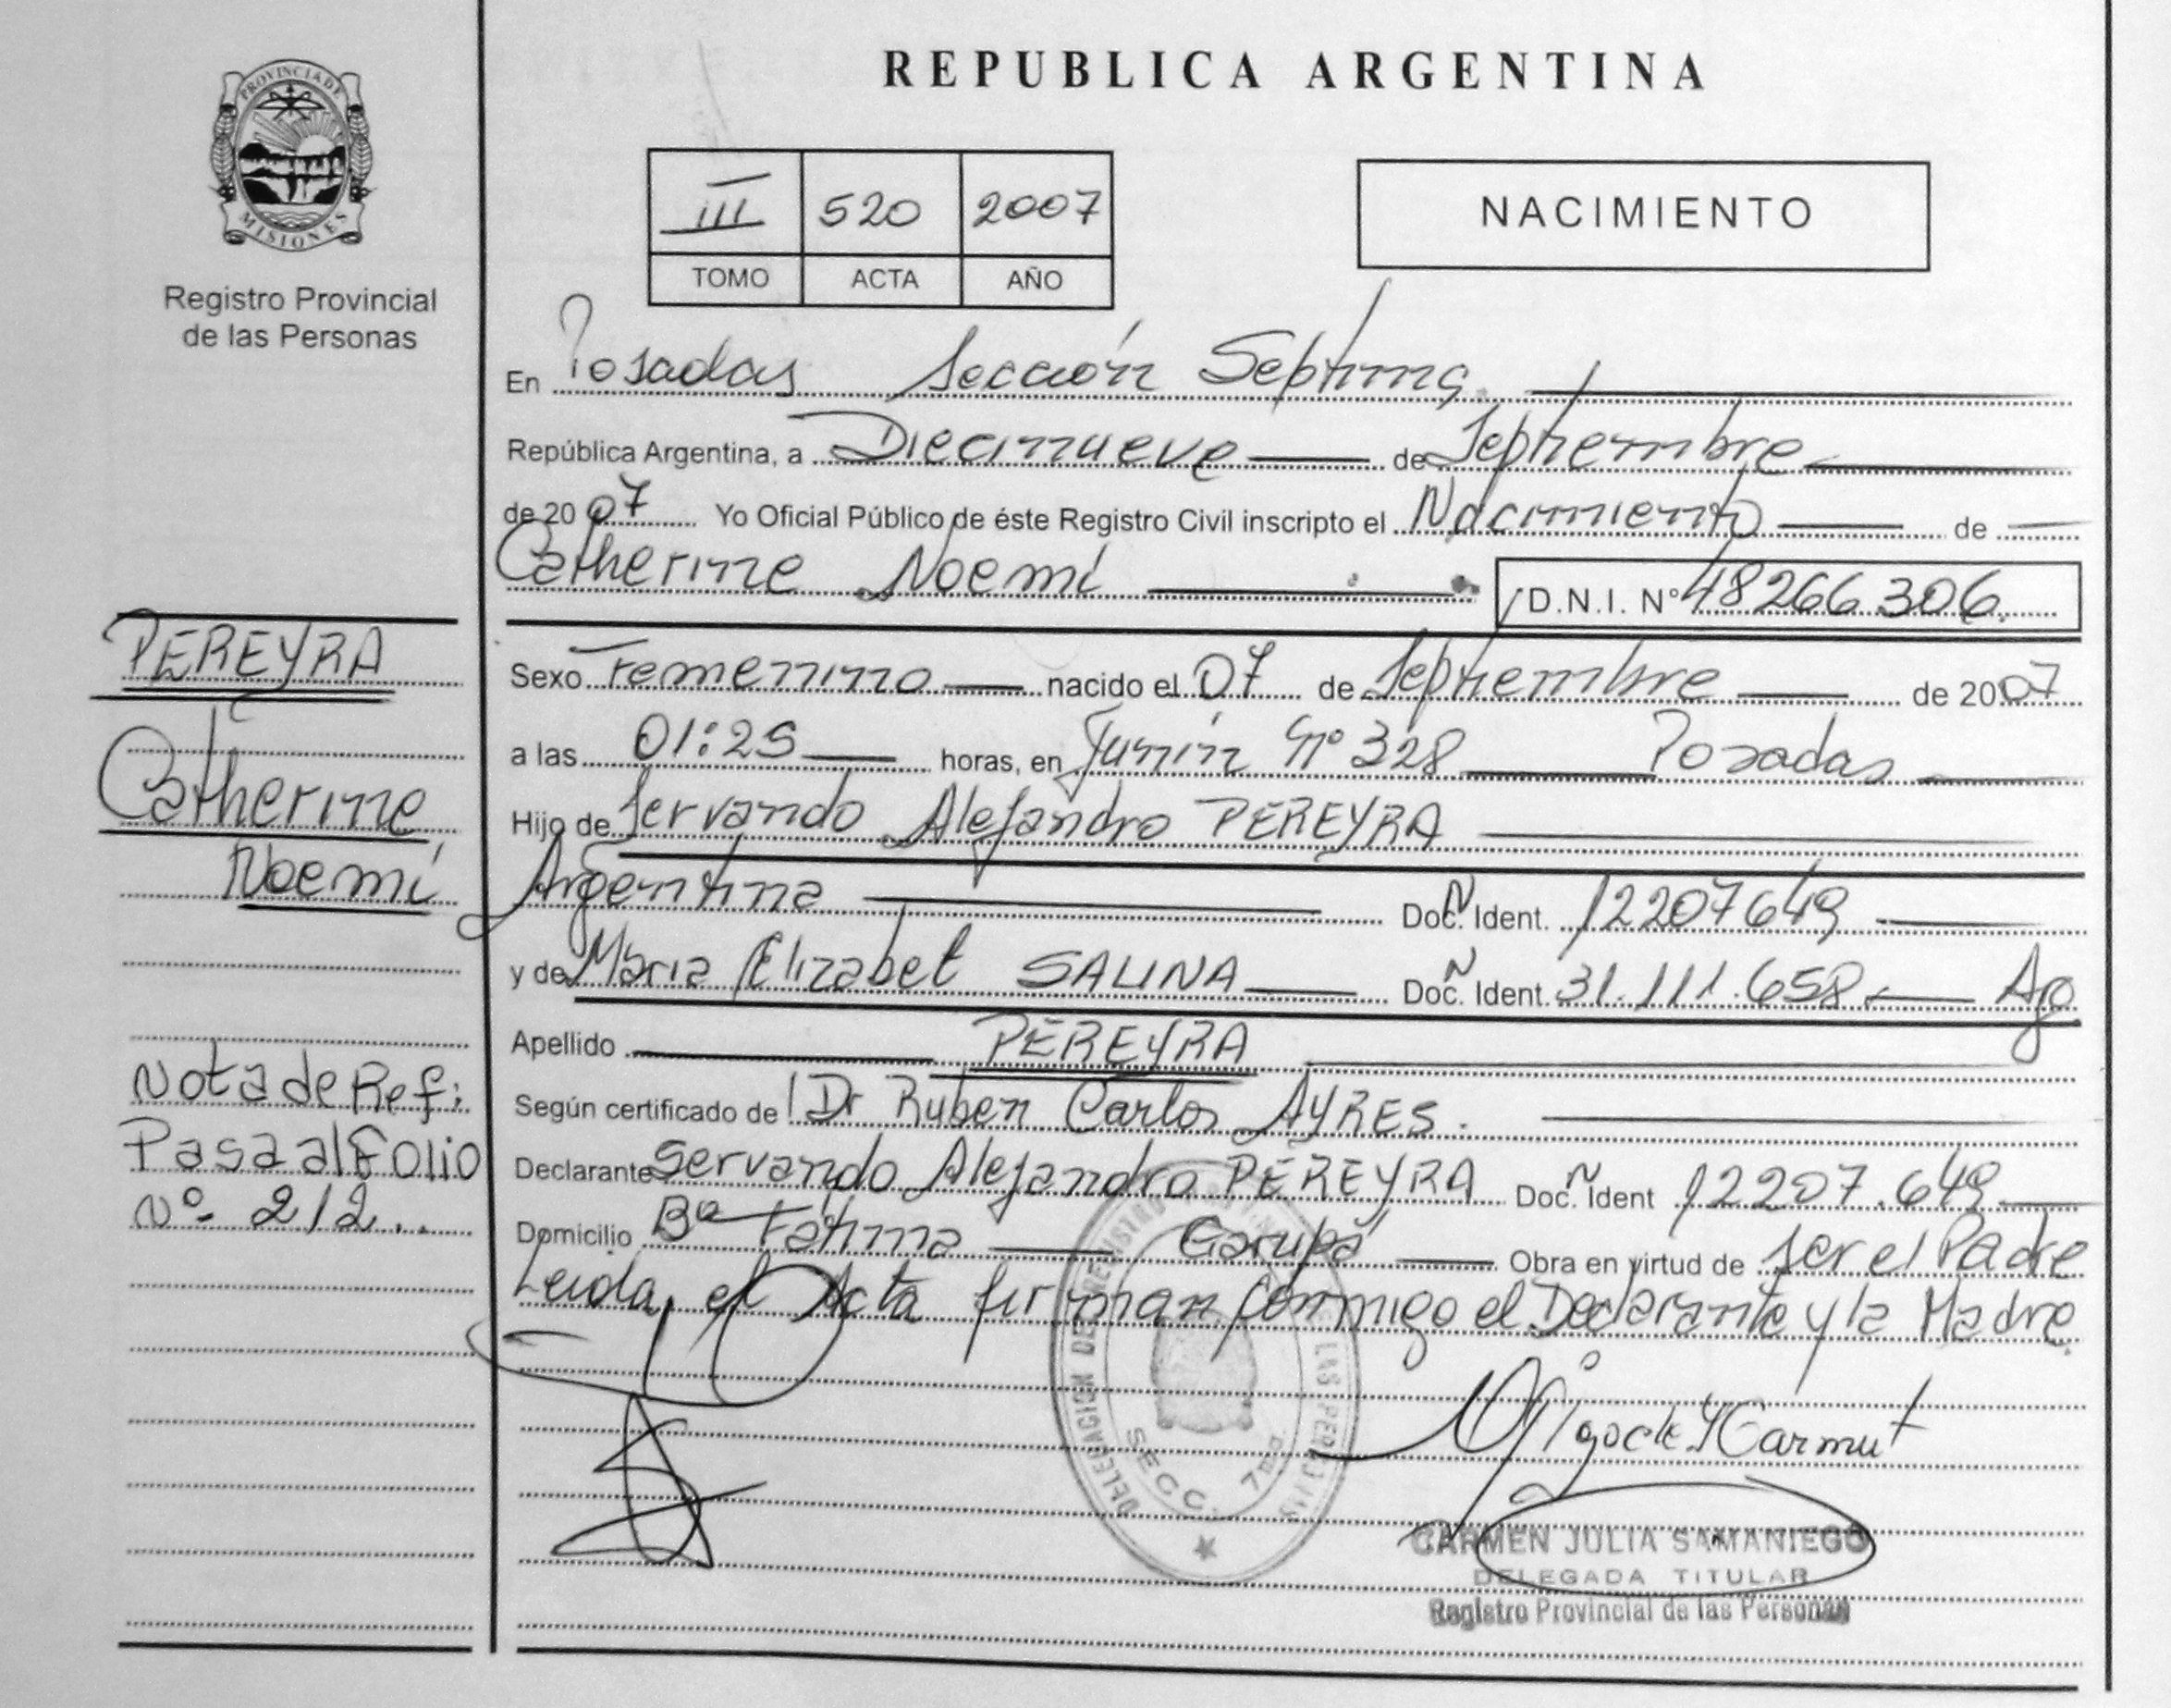 REPUBLICA ARGENTINA
PROVINCIA DE
MISIONES
Registro Provincial
de las Personas
III 520 2007
TOMO ACTA AÑO
NACIMIENTO
En Posadas Sección Septima
República Argentina, a Diecinueve de Septiembre
de 2007 Yo Oficial Público de éste Registro Civil inscripto el Nacimiento de
Catherine Noemí D.N.I. N° 48266306
PEREYRA
Catherine
Noemí
Sexo Femenino nacido el 07 de Septiembre de 2007
a las 01:25 horas, en Junín Nº 328 Posadas
Hijo de Servando Alejandro PEREYRA
Argentina Doc. Ident. 12207649
y de María Elizabet SALINA Doc. Ident. 31.111.658 Ago
Apellido PEREYRA
Según certificado de Dr Ruben Carlos AYRES.
Declarante Servando Alejandro PEREYRA Doc. Ident 12207.649
Domicilio Bº Fátima Garupá Obra en virtud de ser el Padre
Leida el Acta firman conmigo el Declarante y la Madre
Nota de Ref:
Pasa al Folio
Nº 212..
DELEGACION DEL REGISTRO PROVINCIAL DE LAS PERSONAS
SECC. 7ma
CARMEN JULIA SAMANIEGO
DELEGADA TITULAR
Registro Provincial de las Personas